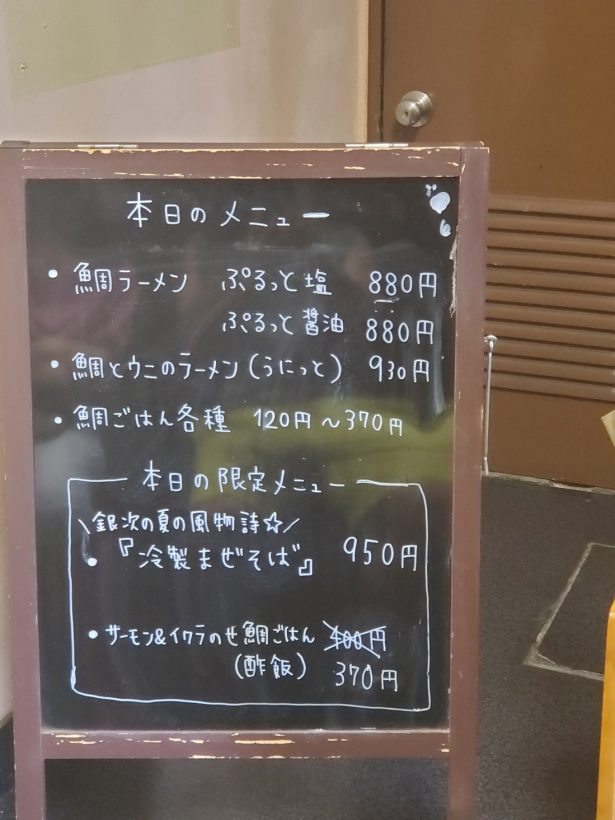 本日のメニュー
• 鯛ラーメン ぷるっと塩 880円
ぷるっと醤油 880円
• 鯛とウニのラーメン(うにっと) 930円
• 鯛ごはん各種 120円～370円
本日の限定メニュー
\銀次の夏の風物詩☆/
• 『冷製まぜそば』 950円
• サーモン&イクラのせ鯛ごはん 400円
(酢飯) 370円